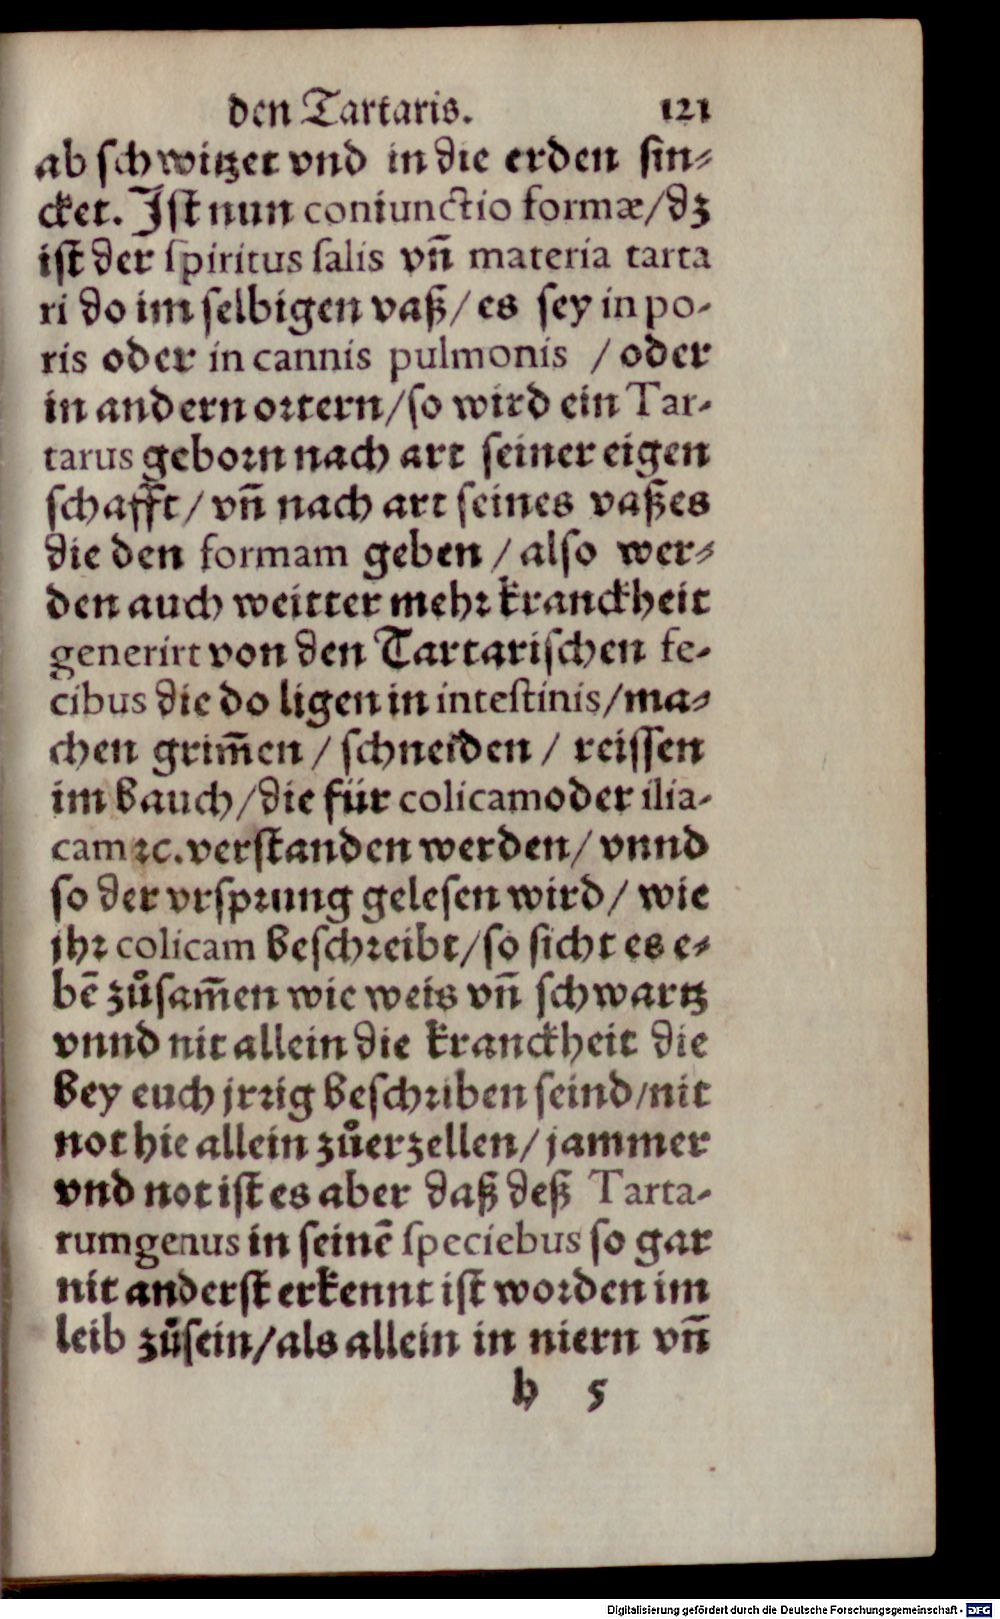 den Tartaris. 121
ab schwitzet vnd in die erden sin⸗
cket. Ist nun coniunctio formæ/dz
ist der spiritus salis vñ materia tarta
ri do im selbigen vaß/ es sey in po-
ris oder in cannis pulmonis / oder
in andern ortern/so wird ein Tar-
tarus geborn nach art seiner eigen
schafft/ vñ nach art seines vaßes
die den formam geben / also wer⸗
den auch weitter mehr kranckheit
generirt von den Tartarischen fe-
cibus die do ligen in intestinis/ma⸗
chen grim̃en / schneiden / reissen
im bauch/die für colicam oder ilia-
cam ꝛc. verstanden werden/ vnnd
so der vrsprung gelesen wird/ wie
jhr colicam beschreibt/so sicht es e⸗
bẽ zůsam̃en wie weis vñ schwartz
vnnd nit allein die kranckheit die
bey euch jrrig beschriben seind/nit
not hie allein zůerzellen/ jammer
vnd not ist es aber daß deß Tarta-
rum genus in seinẽ speciebus so gar
nit anderst erkennt ist worden im
leib zůsein/als allein in niern vñ
h 5
Digitalisierung gefördert durch die Deutsche Forschungsgemeinschaft - DFG